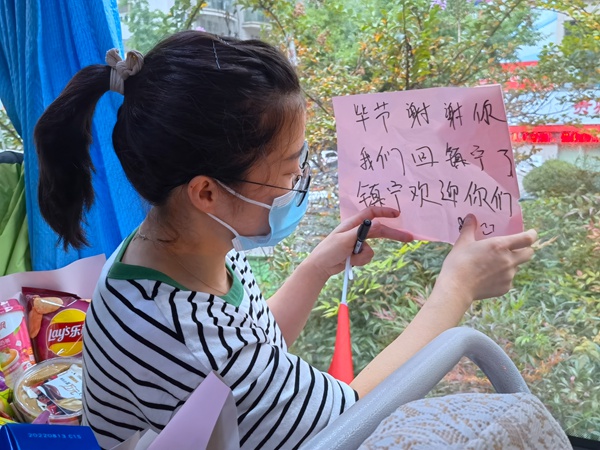 毕节谢谢你
我们回镇宁了
镇宁欢迎你们
Lay's乐事